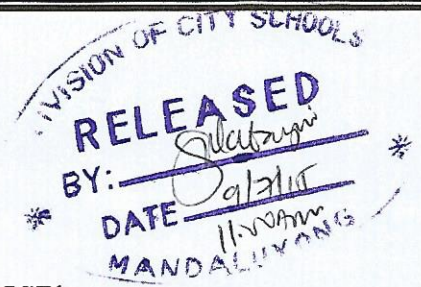 DIVISION OF CITY SCHOOLS
RELEASED
BY:
DATE 9/7/15
11:00AM
MANDALUYONG